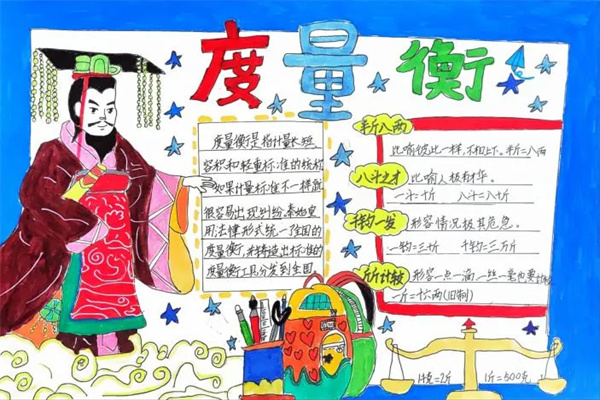 度量衡
度量衡是指计量长短、
容积和轻重标准的统称
如果计量标准不一样就
很容易出现纠纷.秦始皇
用法律形式统一全国的
度量衡,并铸造出标准的
度量衡工具分发到全国
半斤八两
比喻彼此一样,不相上下。半斤=八两
八斗之才 比喻人极有才华。
一斗=十斤 八斗=八十斤
千钧一发 形容情况极其危急。
一钧=三十斤 千钧=三万斤
斤斤计较 形容一点一滴一丝一毫也要计较
一斤=十六两(旧制)
1千克=2斤 1斤=500克